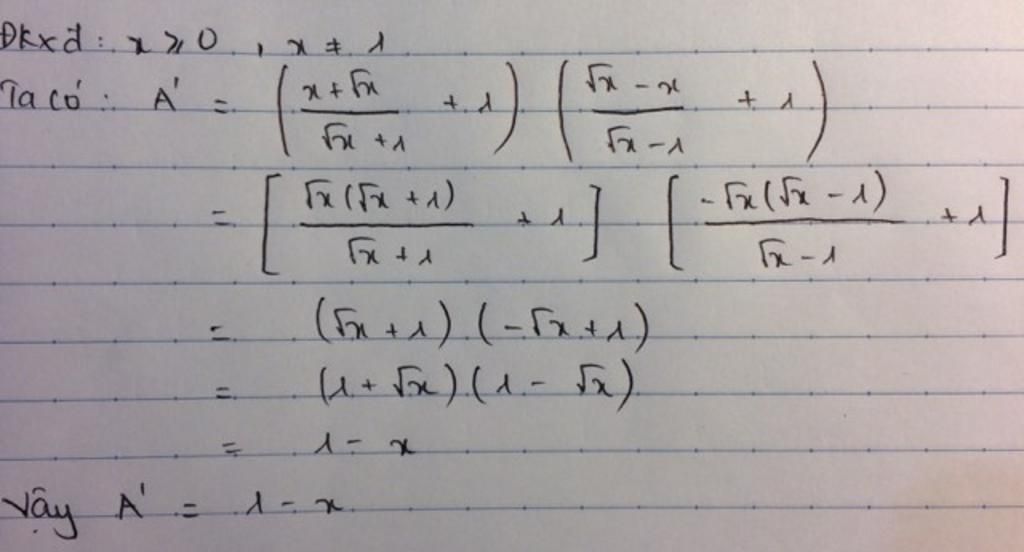 Đkxđ: x ≥ 0, x ≠ 1
Ta có: A' = ((x + √x)/(√x + 1) + 1) ((√x - x)/(√x - 1) + 1)
= [(√x(√x + 1))/(√x + 1) + 1] [(-√x(√x - 1))/(√x - 1) + 1]
= (√x + 1)(-√x + 1)
= (1 + √x)(1 - √x)
= 1 - x
Vậy A' = 1 - x